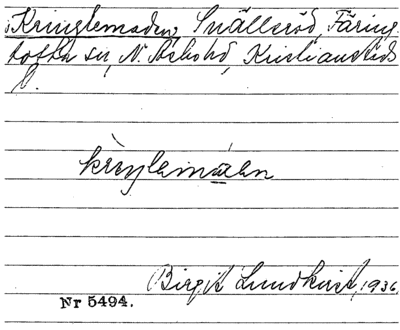 Kringlemaden, Snälleröd, Färing-
tofta sn, N. Åsbohd, Kristianstads
l.
Birgit Lundkvist, 1936.
Nr 5494.